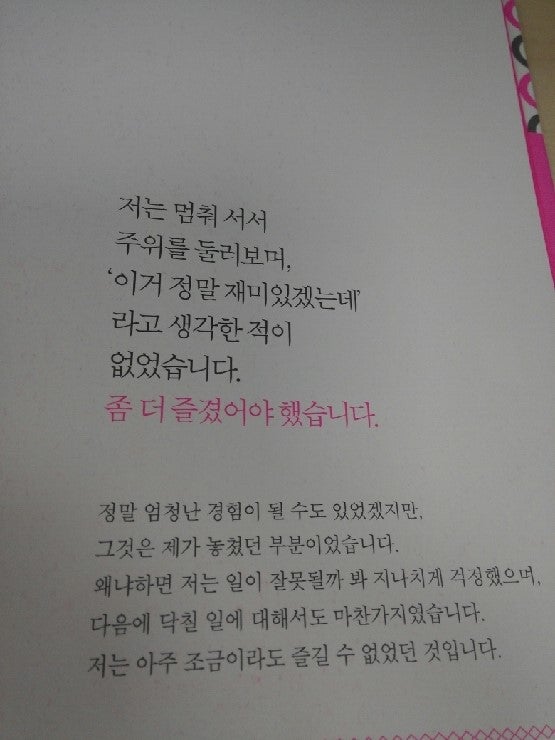 저는 멈춰 서서
주위를 둘러보며,
‘이거 정말 재미있겠는데’
라고 생각한 적이
없었습니다.
좀 더 즐겼어야 했습니다.
정말 엄청난 경험이 될 수도 있었겠지만,
그것은 제가 놓쳤던 부분이었습니다.
왜냐하면 저는 일이 잘못될까 봐 지나치게 걱정했으며,
다음에 닥칠 일에 대해서도 마찬가지였습니다.
저는 아주 조금이라도 즐길 수 없었던 것입니다.